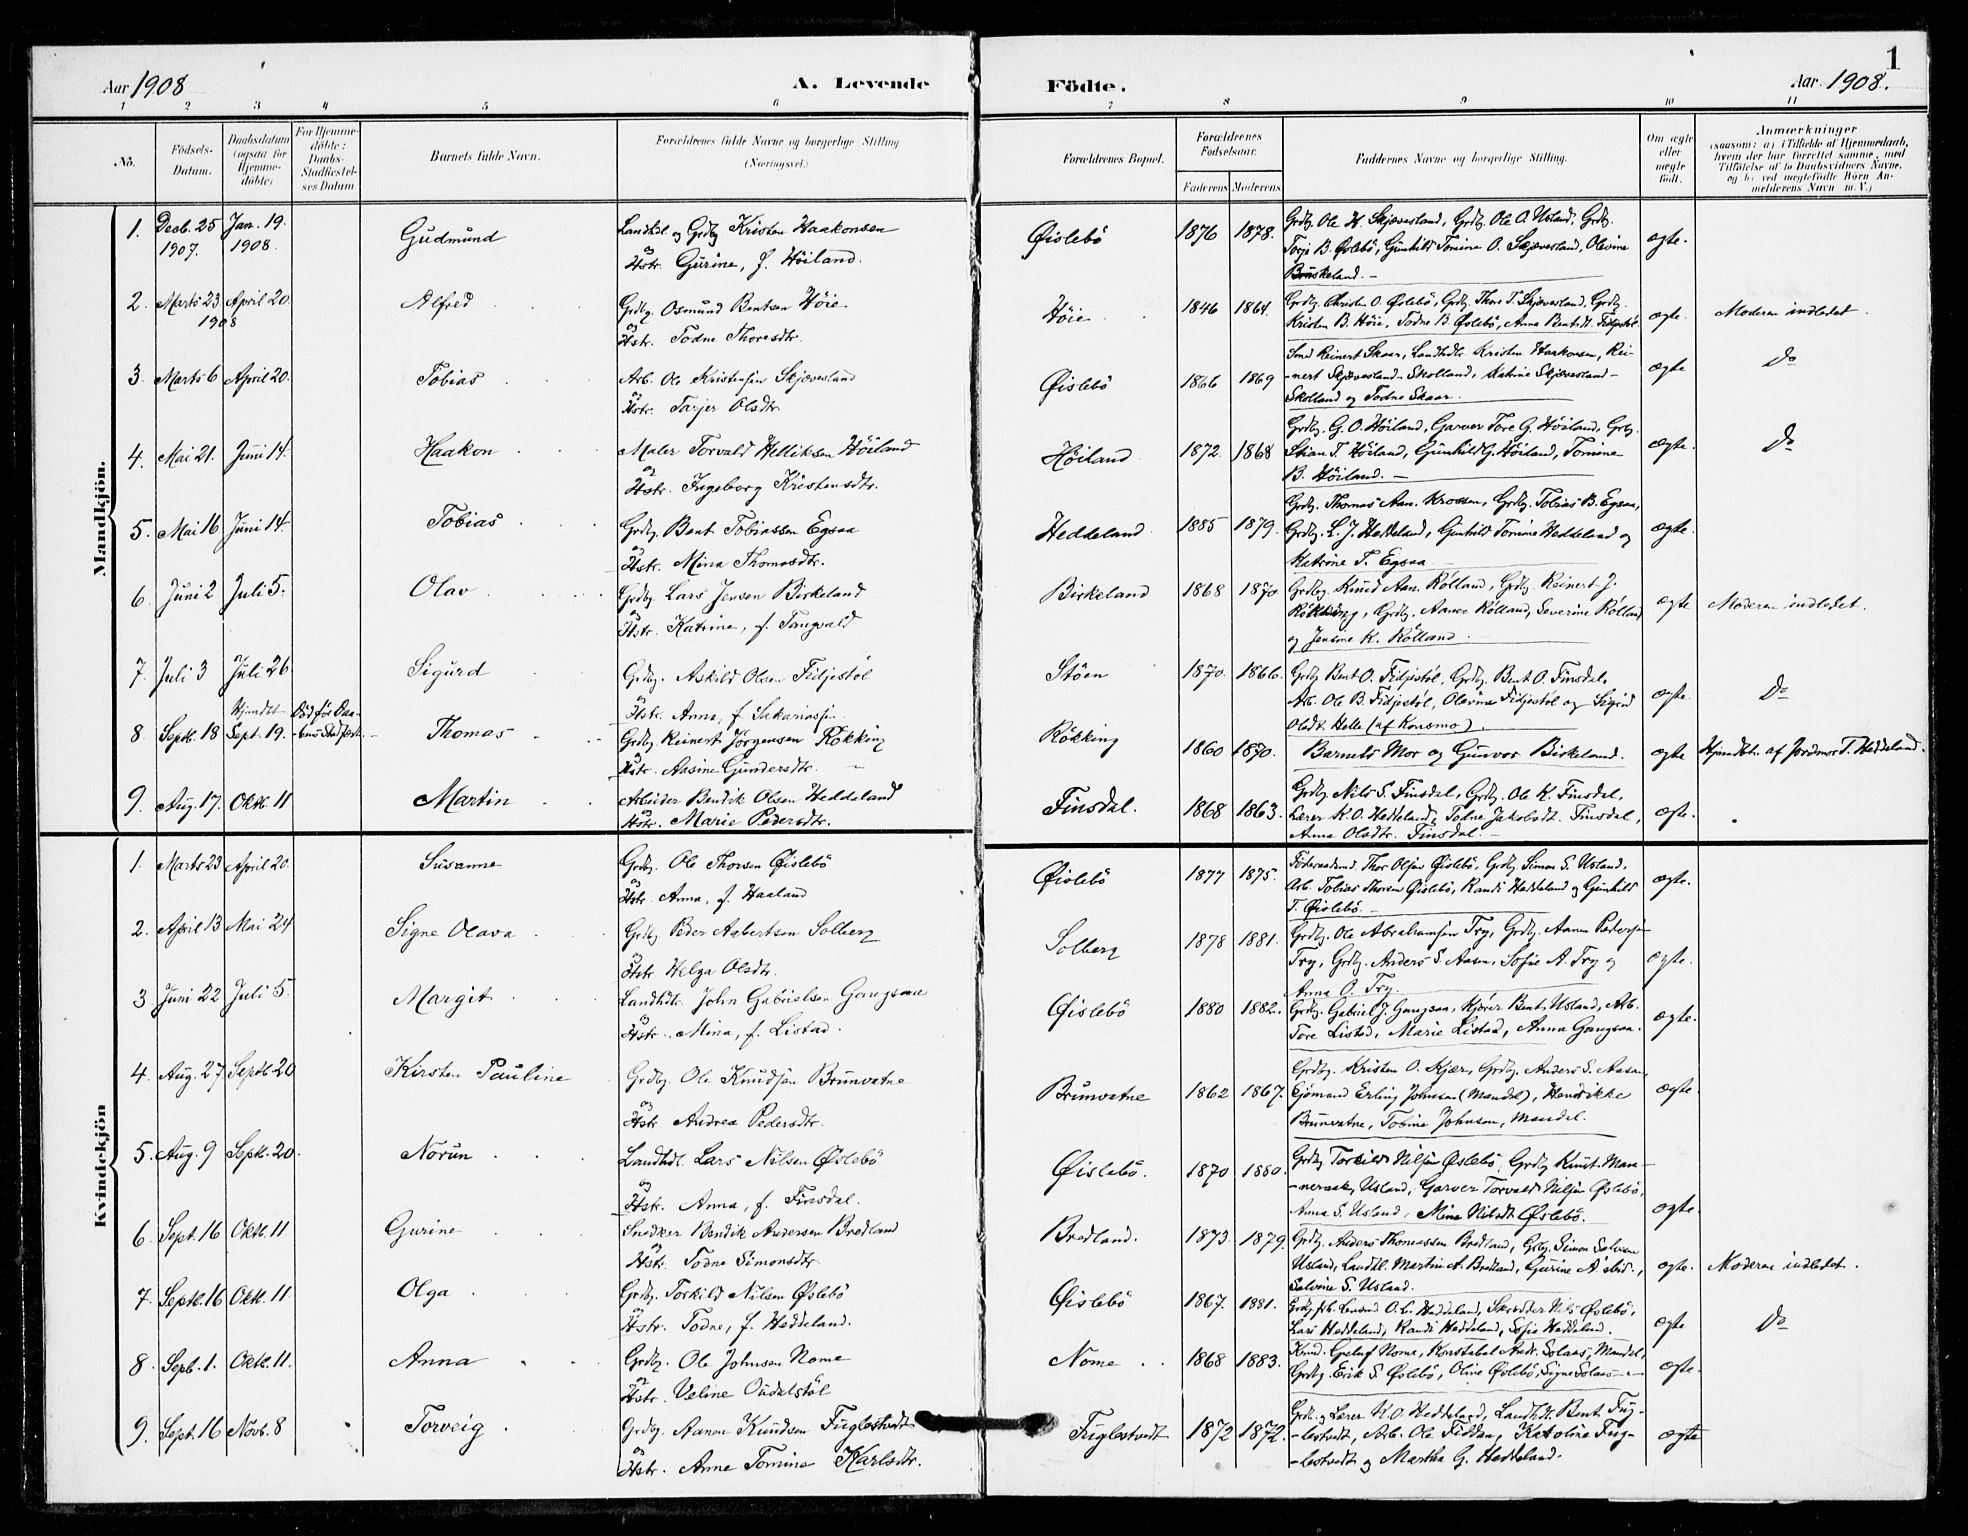 Aar 1908
A. Levende
Födte.
Aar 1908.
1
1 2 3 4 5 6 7 8 9 10 11
Nö.
Födsels-
Datum.
Daabsdatum
(ogsaa for
Hjemme-
döbte)
For Hjemme-
döbte:
Daabs-
Stadfæstel-
ses Datum
Barnets fulde Navn.
Forældrenes fulde Navne og borgerlige Stilling
(Næringsvei.)
Forældrenes Bopæl.
Forældrenes
Fødselsaar.
Faderens Moderens
Faddernes Navne og borgerlige Stilling.
Om ægte
eller
uægte
født.
Anmærkninger
(saasom: a) i Tilfælde af Hjemmedaab,
hvem der har forrettet samme, med
Tilföielse af to Daabsvidners Navne,
og b) ved uægtefödte Börn An-
melderens Navn m. V.)
Mandkjön.
1. Decb. 25 1907. Jan. 19. 1908. Gudmund
Landhdl. og Grdbg Kristen Haakonsen
og Hstr. Gurine, f. Höiland.
Øislebö 1876 1878.
Grdbg. Ole H. Skjævesland, Grdbg. Ole O. Usland, Grdbg.
Torje B. Øslebö, Gunhild Tomine O. Skjævesland, Olevine
Bruskeland. –
ægte.
2. Marts 23 1908 April 20. Alfred
Grdbg. Osmund Bentsen Höie
og Hstr. Todne Thoresdtr.
Höie 1846 1864.
Grdbg. Christen O. Øslebö, Grdbg. Thore T. Skjævesland, Grdbg.
Kristen B. Höie, Todne B. Øslebö, Anna Bentsdt. Fidjestöl
ægte. Moderen indledet.
3. Marts 6 April 20. Tobias
Arb. Ole Kristensen Skjævesland
og Hstr. Tarjer Olsdtr.
Øislebö 1866 1869
Smed Reinert Skaar, Landhdlr. Kristen Haakonsen, Rei-
-nert Skjævesland-Skolland, Katrine Skjævesland-
Skolland og Todne Skaar.
ægte Do
4. Mai 21. Juni 14. Haakon
Maler Torvald Helliksen Höiland
og Hstr. Ingeborg Kristensdtr.
Höiland 1872 1868
Grdbg. G. O. Höiland, Garver Tore G. Höiland, Grbg.
Stian T. Höiland, Gunhild G. Höiland, Tomine
B. Höiland. –
ægte. Do
5. Mai 16 Juni 14. Tobias
Grdbg. Bent Tobiassen Egsaa
og Hstr. Mina Thomasdtr.
Heddeland 1885 1879.
Grdbg. Thomas Aan. Krossen, Grdbg. Tobias B. Egsaa,
Grdbg. L. J. Heddeland, Gunhild Tomine Heddeland og
Katrine T. Egsaa
ægte.
6 Juni 2 Juli 5. Olav
Grdbg. Lars Jensen Birkeland
og Hstr. Katrine, f. Tangvald
Birkeland 1868 1870
Grdbg. Knud Aan. Rölland, Grdbg. Reinert J.
Rökking, Grdbg. Aanen Rölland, Severine Rölland
og Jensine K. Rölland.
ægte Moderen indledet.
7. Juli 3 Juli 26 Sigurd
Grdbg. Askild Olsen Fidjestöl
og Hstr. Anna, f. Sakariassen
Stöen 1870. 1866.
Grdbg Bent O. Fidjestöl, Grdbg. Bent O. Finsdal,
Arb. Ole B. Fidjestöl, Olevine Fidjestöl og Sigrid
Olsdt. Helle (af Konsmo).
ægte. Do
8. Septb. 18 Hjmdbt Sept. 19. Död för Daa-
-bens Stadfæst.- Thomas
Grdbg Reinert Jörgensen Rökking
og Hstr. Aasine Gundersdtr.
Rökking 1860 1870.
Barnets Mor og Gunvor Birkeland.
ægte Hjmdbt. af Jordmor T. Heddeland.
9. Aug. 17. Oktb. 11 Martin
Arbeider Bendik Olsen Heddeland
Hstr. Marie Pedersdtr.
Finsdal. 1868 1863.
Grdbg Nils S. Finsdal, Grdbg. Ole K. Finsdal,
Lærer K. O. Heddeland, Todne Jakobsdt. Finsdal,
Anna Olsdtr. Finsdal. –
ægte.
Kvindekjön
1. Marts 23 April 20. Susanne
Grdbg. Ole Thorsen Øislebö
og Hstr. Anna, f. Haaland
Øislebö 1877 1875.
Föderaadsmd. Thor Olsen Øislebö, Grdbg Simon S. Usland,
Arb. Tobias Thorsen Øislebö, Randi Heddeland og Gunhild
T. Øislebö. –
ægte.
2. April 13 Mai 24 Signe Olava
Grdbg. Peder Aabertsen Solberg
og Hstr Helga Olsdtr.
Solberg 1878 1881.
Grdbg. Ole Abrahamsen Try, Grdbg. Aanen Pedersen
Try, Grdbg. Anders S. Aasen, Sofie A. Try og
Anna O. Try.
ægte.
3. Juni 22 Juli 5. Margit
Landhdl. John Gabrielsen Gangsaa
og Hstr. Mina, f. Listad.
Øislebö 1880 1882.
Grdbg. Gabriel J. Gangsaa, Kjörer Bent Usland, Arb.
Tore Listad, Marie Listad, Anna Gangsaa.
ægte.
4. Aug. 27 Septb. 20 Kirsten Pauline
Grdbg. Ole Knudsen Brunvatne
og Hstr. Andrea Pedersdtr.
Brunvatne 1862 1867.
Grdbg. Kristen O. Kjær, Grdbg. Anders S. Aasen,
Sjömand Erling Johnsen (Mandal), Hendrikke
Brunvatne, Tobine Johnsen, Mandal.
ægte.
5. Aug. 9 Septb. 20. Norun
Landhdl. Lars Nilsen Øslebö
og Hstr. Anna, f. Finsdal.
Øislebö. 1870 1880.
Grdbg Torkild Nilsen Øslebö, Grdbg Knut Man-
-neraak, Usland, Garver Torvald Nilsen Øslebö,
Anna S. Usland, Mina Nilsdt Øslebö.
ægte.
6. Sept. 16 Oktb. 11 Gurine
Snedker Bendik Andersen Bredland
og Hstr. Todne Simonsdtr
Bredland. 1873. 1879.
Grdbg. Anders Thomassen Bredland, Grbg. Simon Salvesen
Usland, Landhl. Martin A. Bredland, Gurine A. ibid.,
Salvine S. Usland.
ægte. Moderen indledet.
7. Septb. 16 Oktb. 11 Olga
Grdbg. Torkild Nilsen Øslebö
og Hstr. Todne, f. Heddeland.
Øislebö 1867. 1881.
O. L. Heddeland, Skrædder Nils Øslebö,
Lars Heddeland, Randi Heddeland, Sofie Heddeland.
ægte Do
8. Septb. 1. Oktb. 11. Anna
Grdbg. Ole Johnsen Nome
og Hstr. Veline Oudalstöl
Nome 1868 1883.
Nome, Konstabel Andr. Solaas, Mandal,
Grdbg. Erik S. Øslebö, Oline Øslebö, Signe Solaas –
ægte.
9. Sept. 16 Novb. 8 Torveig
Grdbg. Aanen Knudsen Fuglestvedt
og Hstr. Anne Tomine Karlsdtr.
Fuglestvedt 1872 1872.
Grdb. og Lærer K. O. Heddeland, Landhdl. Bent Fug-
-lestvedt, Arb. Ole Fiddan, Karoline Fug-
-lestvedt og Martha G. Heddeland.
ægte